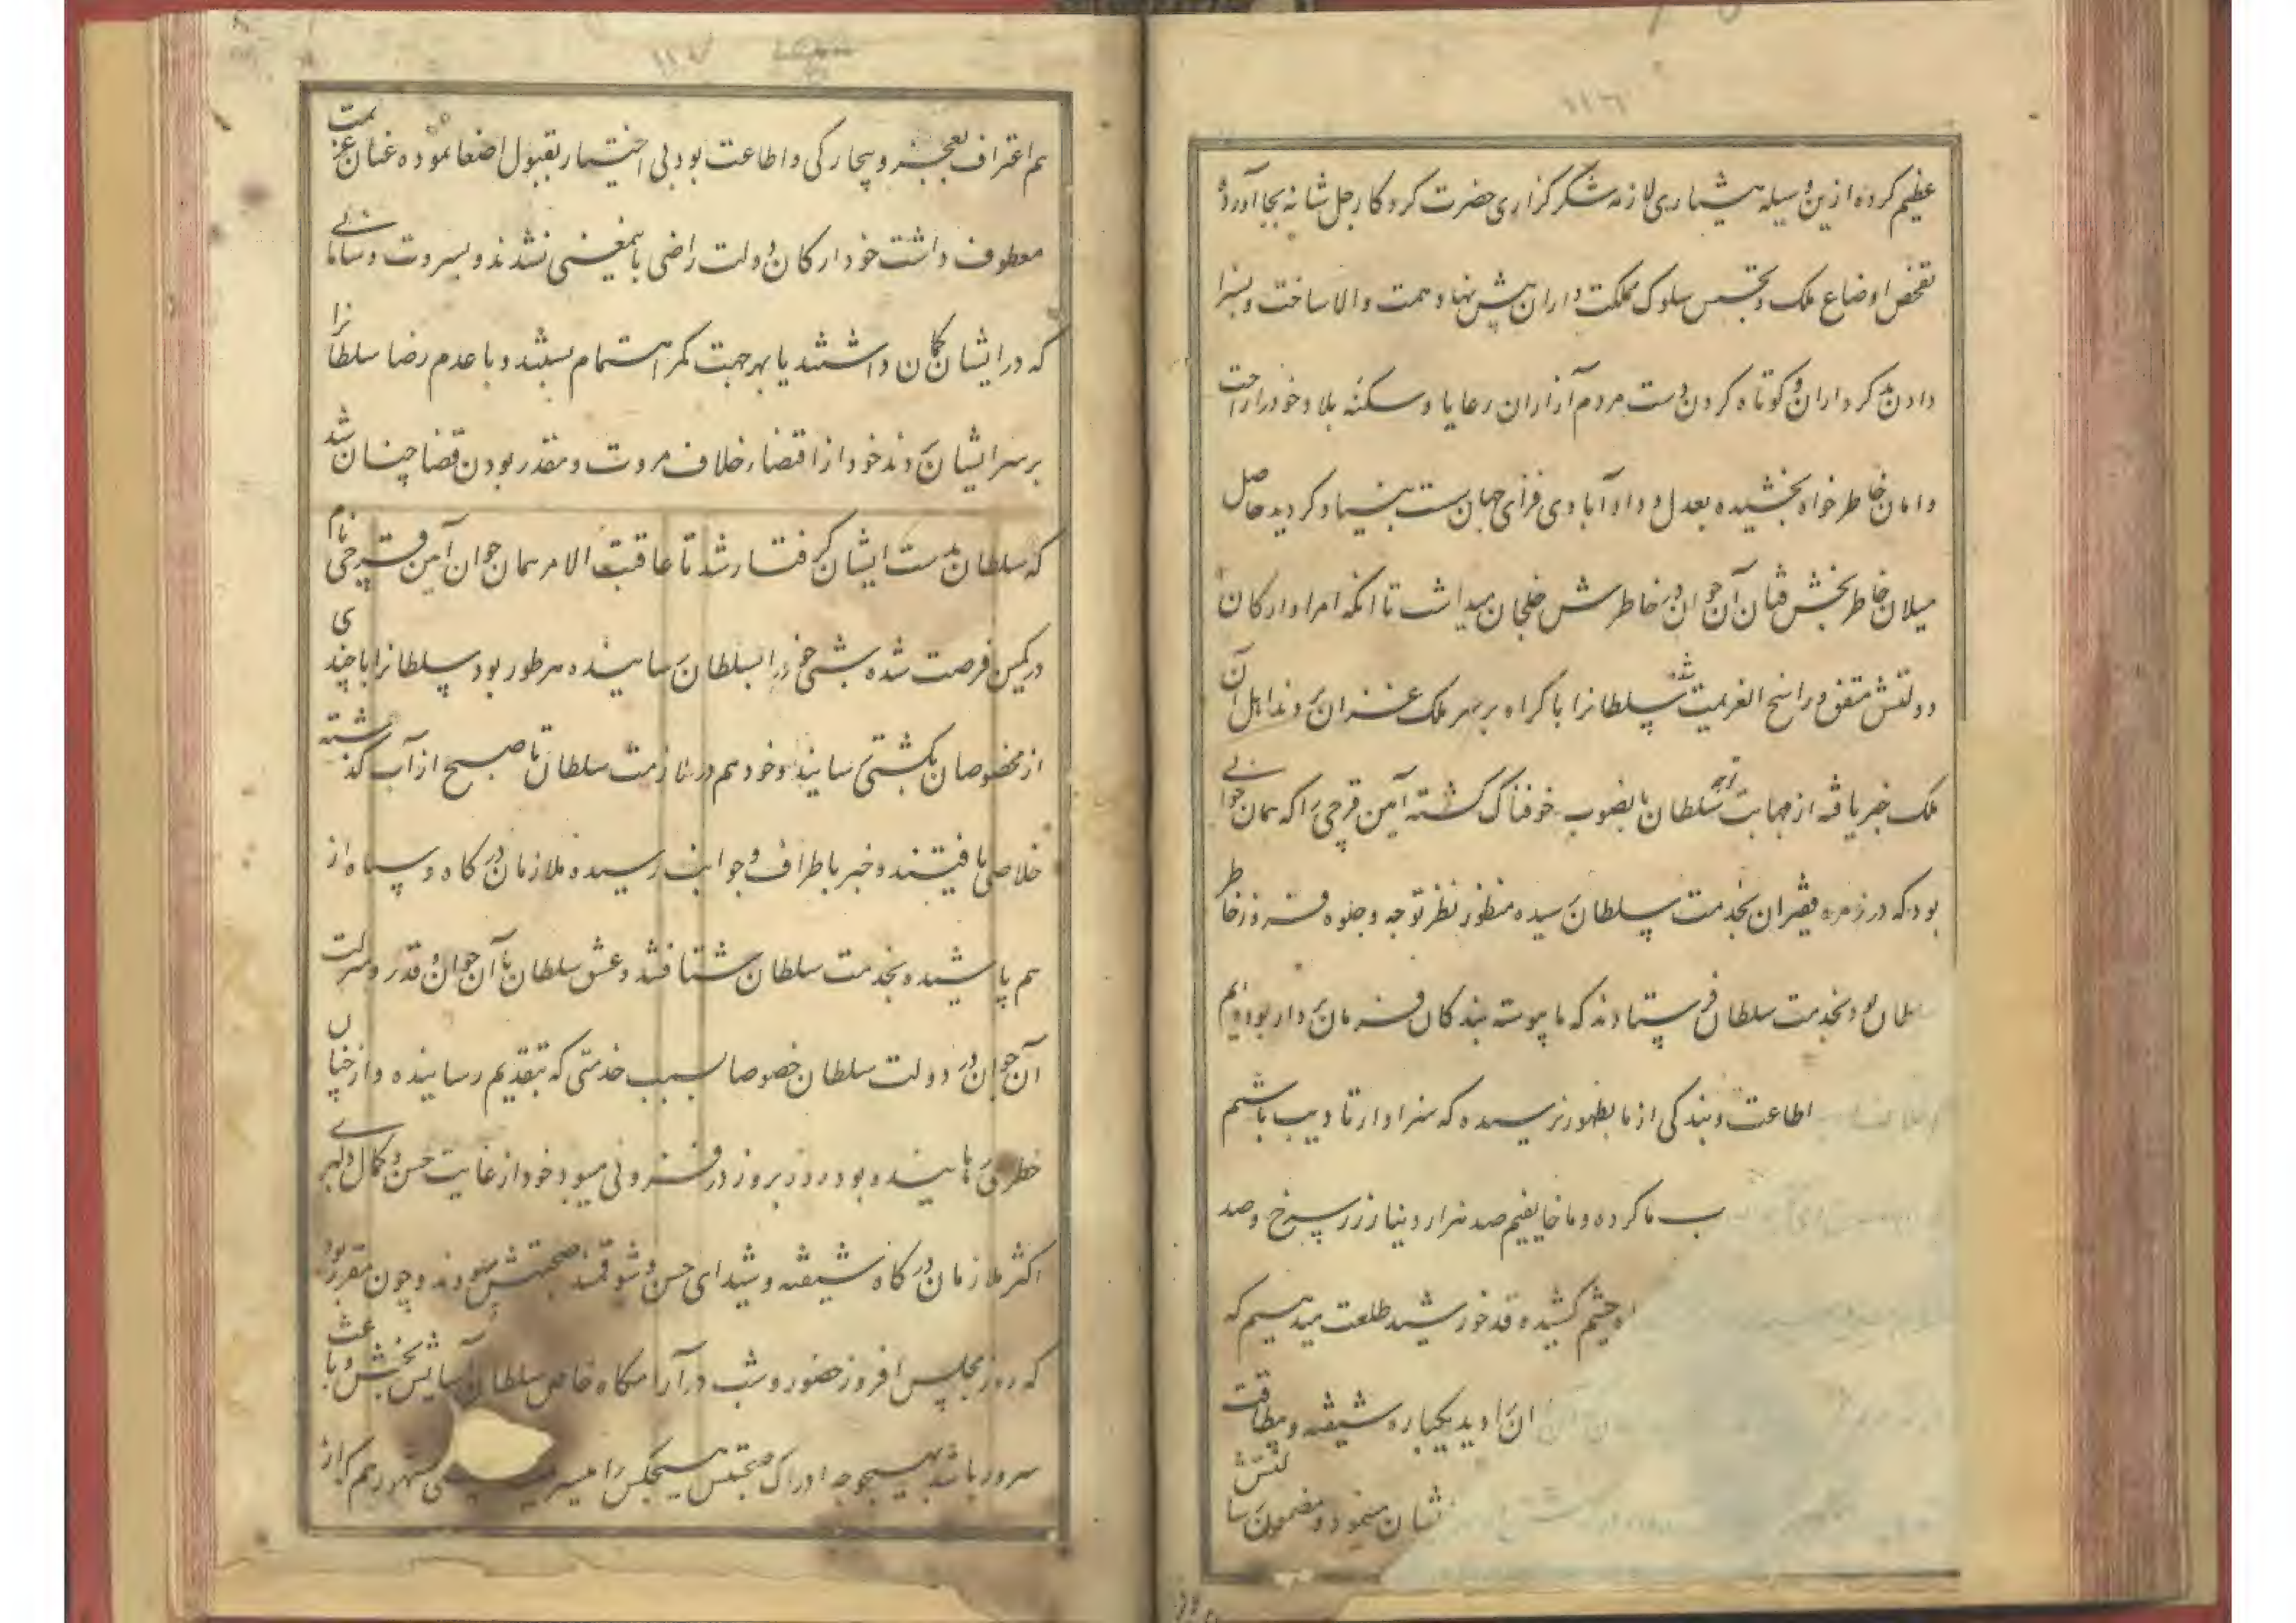 عظیم کرده ازین وسیله بیشماری لازمه شکرگزاری حضرت کردکار جل شانه بجا آورده
تفحص اوضاع ملک و تجسس سلوک مملکت داران پیش نهاد همت والا ساخت و بسزا
دادن بد کرداران و کوتاه کردن دست مردم آزاران رعایا و سکنه بلاد خود را راحت
و امان خاطر خواه بخشیده بعدل و داد آبادی فزای جهان سست بنیاد کردید حاصل
میلان خاطر بخش فیان آن جوان در خاطرش خلجان میداشت تا انکه امرا و ارکان
دولتش متفق و راسخ العزیمت شده سلطانرا باکراه بر سر ملک عزان بردند اهل آن
ملک خبر یافته از مهابت توجه سلطان بانصوب خوفناک کشته آمین قرچی را که همان جوانی
بود که در زمره فقیران بخدمت سلطان رسیده منظور نظر توجه و جلوه فروز خاطر
سلطان بود بخدمت سلطان فرستادند که ما پیوسته بندکان فرمان بردار بوده‌ایم
اطاعت و بندکی از ما بظهور نرسیده که سزاوار تادیب باشیم
ب ما کرده و ما خایفیم صد هزار دینار زر سرخ و صد
اه چشم کشیده قد خورشید طلعت میدهیم که
ان را دید یکباره شیفته و بیطاقت
نشان مینمود و مضمون رسالتش
هم اعتراف بعجز و بیچارکی و اطاعت بود بی اختیار بقبول اضغا نموده عنان عزیمت
معطوف داشت خود ارکان دولت راضی باینمعنی نشدند و بسروت و سامانی
که در ایشان کمان داشتند یا بهر جهت کمر اهتمام بستند و با عدم رضا سلطانرا
بر سر ایشان بردند خود از اقتضاء خلاف مروت و مقدر بودن قضا چنان شد
که سلطان بدست ایشان کرفتار شد تا عاقبت الامر همان جوان آمین قرچی نام
در کمین فرصت شده شبی خود را بسلطان رسانیده هر طور بود سلطانرا با چندی
از مخصوصان بکشتی رسانیده و خود هم در ملازمت سلطان تا صبح از آب کذشته
خلاصی یافتند و خبر باطراف و جوانب رسیده ملازمان درکاه و سپاه از
هم پاشیده بخدمت سلطان شتافتند و عشق سلطان با آن جوان و قدر و منزلت
آن جوان در دولت سلطان خصوصا بسبب خدمتی که بتقدیم رسانیده و از چنان
خطری رهانیده بود روز بروز در فزونی میبود خود از غایت حسن و کمال دلبری
اکثر ملازمان درکاه شیفته و شیدای حسن و شوقمند صحبتش میبودند و چون مقرر بود
که روز مجلس افروز حضور و شب در آرامکاه خاص سلطان آسایش بخش و باعث
سرور باشد بهیچوجه ادراک صحبتش هیچکس را میسر مشهور هم که از